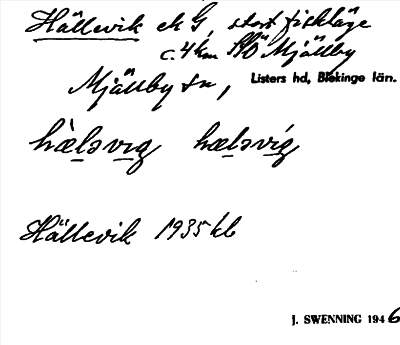 Hällevik ek G, stort fiskläge
c. 4 km SSO Mjällby
Mjällby sn, Listers hd, Blekinge län.
hæ̀ləvıg hæləvíg
Hällevik 1935 kb
J. SWENNING 1946